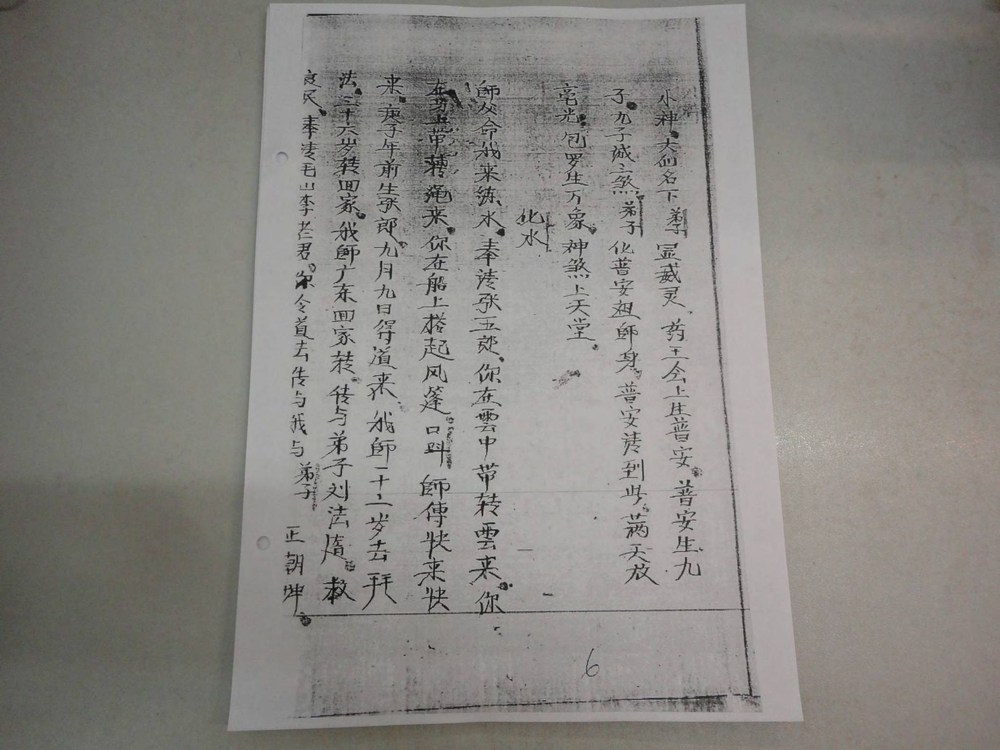 小神、大仙名下弟子显威灵、药王会上生普安、普安生九
子、九子成煞弟子化普安祖師身、普安请到此、满天放
毫光、包罗生万象、神煞上天堂。
化水
師父命我来练水、奉请张五郎、你在雲中带转雲来、你
在带转绳来、你在船上搭起风篷口叫師傅快来快
来、庚子年前生张郎、九月九日得道来、我師十二岁去拜
法、三十六岁转回家、我師广东回家转、传与弟子刘法
奉请毛山李老君、令道去传与我与弟子正朝坤、
6